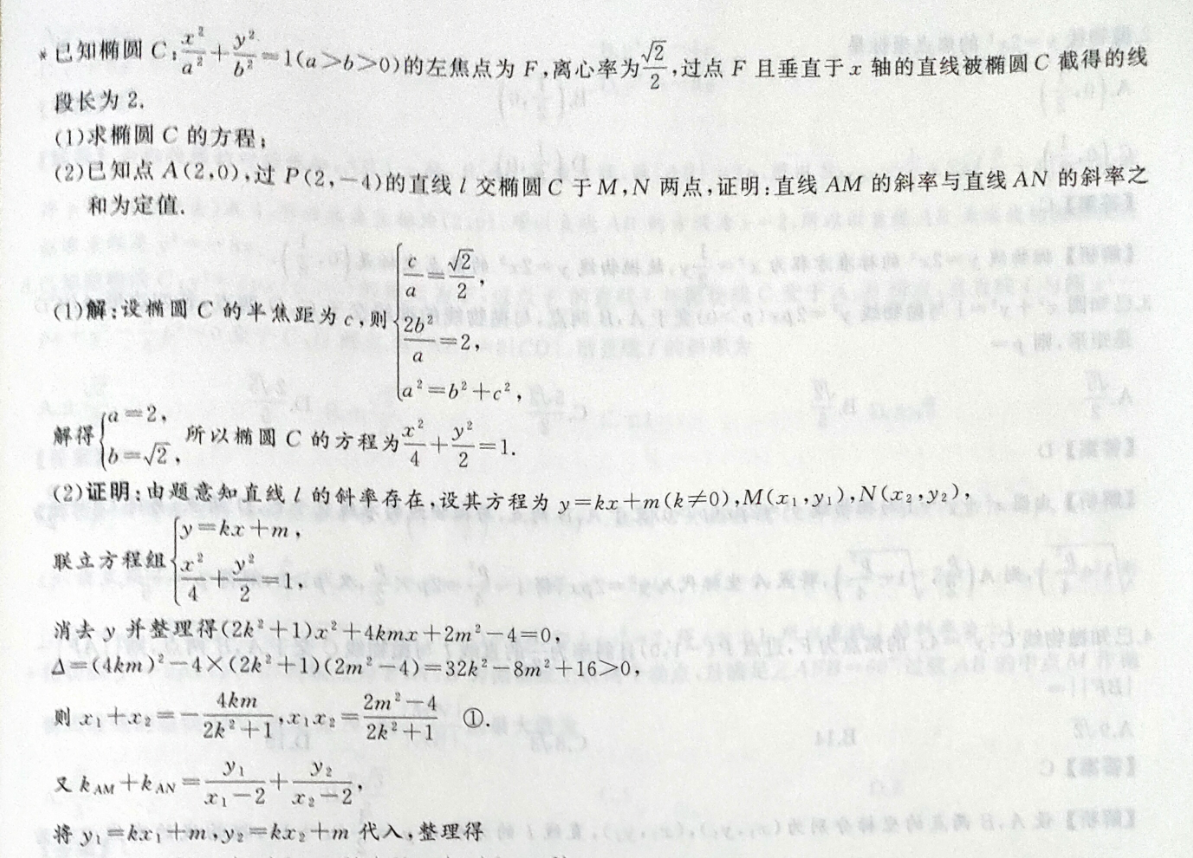 *已知椭圆 C:x²/a²+y²/b²=1(a>b>0)的左焦点为 F,离心率为√2/2,过点 F 且垂直于 x 轴的直线被椭圆 C 截得的线
段长为 2.
(1)求椭圆 C 的方程;
(2)已知点 A(2,0),过 P(2,-4)的直线 l 交椭圆 C 于 M,N 两点,证明:直线 AM 的斜率与直线 AN 的斜率之
和为定值.
(1)解:设椭圆 C 的半焦距为 c,则{c/a=√2/2, 2b²/a=2, a²=b²+c²,
解得{a=2, b=√2, 所以椭圆 C 的方程为x²/4+y²/2=1.
(2)证明:由题意知直线 l 的斜率存在,设其方程为 y=kx+m(k≠0),M(x₁,y₁),N(x₂,y₂),
联立方程组{y=kx+m, x²/4+y²/2=1,
消去 y 并整理得(2k²+1)x²+4kmx+2m²-4=0,
Δ=(4km)²-4×(2k²+1)(2m²-4)=32k²-8m²+16>0,
则 x₁+x₂=-4km/(2k²+1),x₁x₂=(2m²-4)/(2k²+1) ①.
又 k_AM+k_AN=y₁/(x₁-2)+y₂/(x₂-2),
将 y₁=kx₁+m,y₂=kx₂+m 代入,整理得